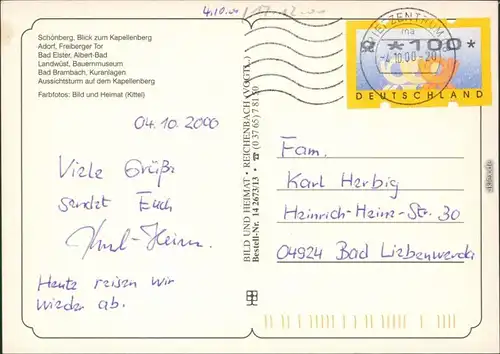 4.10.00 / 17.12.00
Schönberg, Blick zum Kapellenberg
Adorf, Freiberger Tor
Bad Elster, Albert-Bad
Landwüst, Bauernmuseum
Bad Brambach, Kuranlagen
Aussichtsturm auf dem Kapellenberg
Farbfotos: Bild und Heimat (Kittel)
04.10.2000
Viele Grüße
sendet Euch
Karl-Heinz.
Heute reisen wir
wieder ab.
BILD UND HEIMAT • REICHENBACH (VOGTL.)
Bestell-Nr. 14 2673/13 • ☎ (0 37 65) 7 81 50
BRIEFZENTRUM
-4.10.00-20
*100*
DEUTSCHLAND
Fam.
Karl Herbig
Heinrich-Heine-Str. 30
04924 Bad Liebenwerda